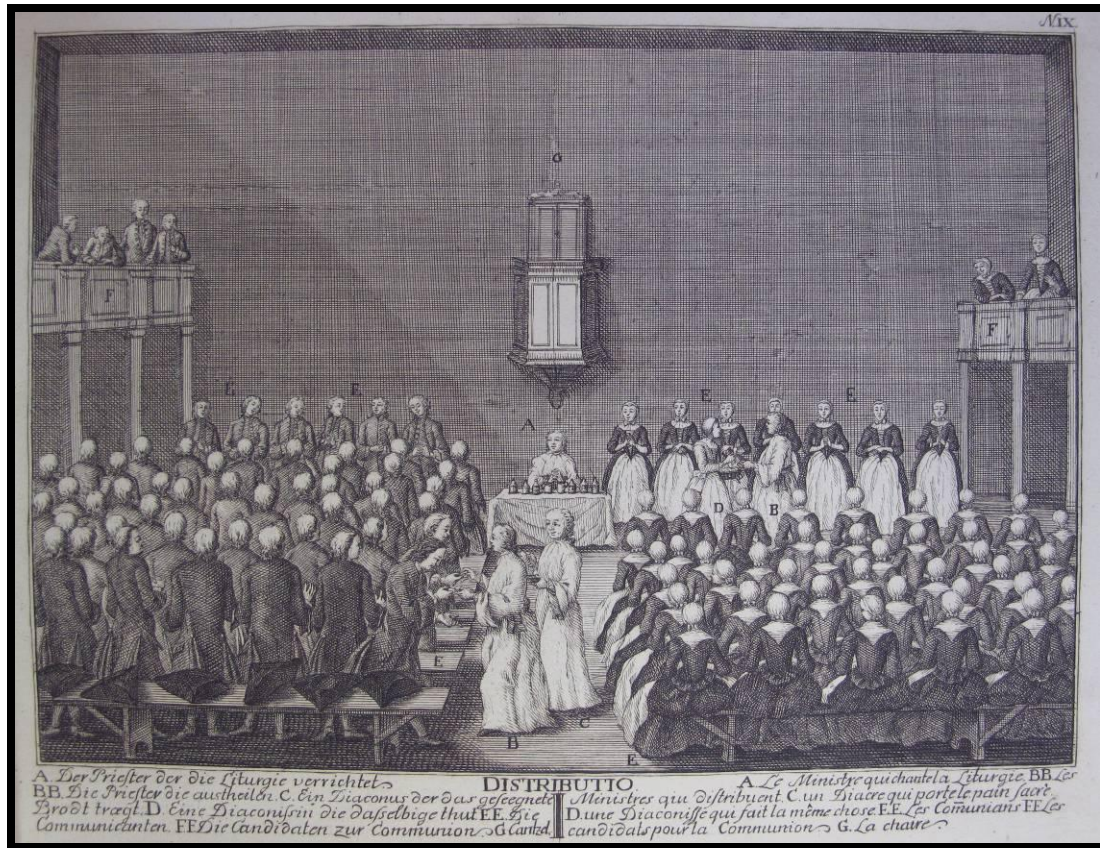 N IX.
G
F
F
E
E
E
E
A
D
B
E
C
B
E
DISTRIBUTIO
A Der Priester der die Liturgie verrichtet
BB. Die Priester die austheilen. C. Ein Diaconus der das geseegnete
Brodt trægt. D. Eine Diaconissin die dasselbige thut EE. Die
Communicanten. FF Die Candidaten zur Communion G Cantzel
A Le Ministre qui chante la Liturgie. BB Les
Ministres qui distribuent. C. un Diacre qui porte le pain sacre
D. une Diaconisse qui fait la même chose. EE. Les Com̄unians FF Les
candidats pour la Communion G. La chaire